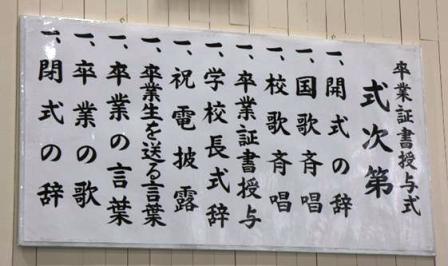 卒業証書授与式
式次第
一、開式の辞
一、国歌斉唱
一、校歌斉唱
一、卒業証書授与
一、学校長式辞
一、祝電披露
一、卒業生を送る言葉
一、卒業の言葉
一、卒業の歌
一、閉式の辞